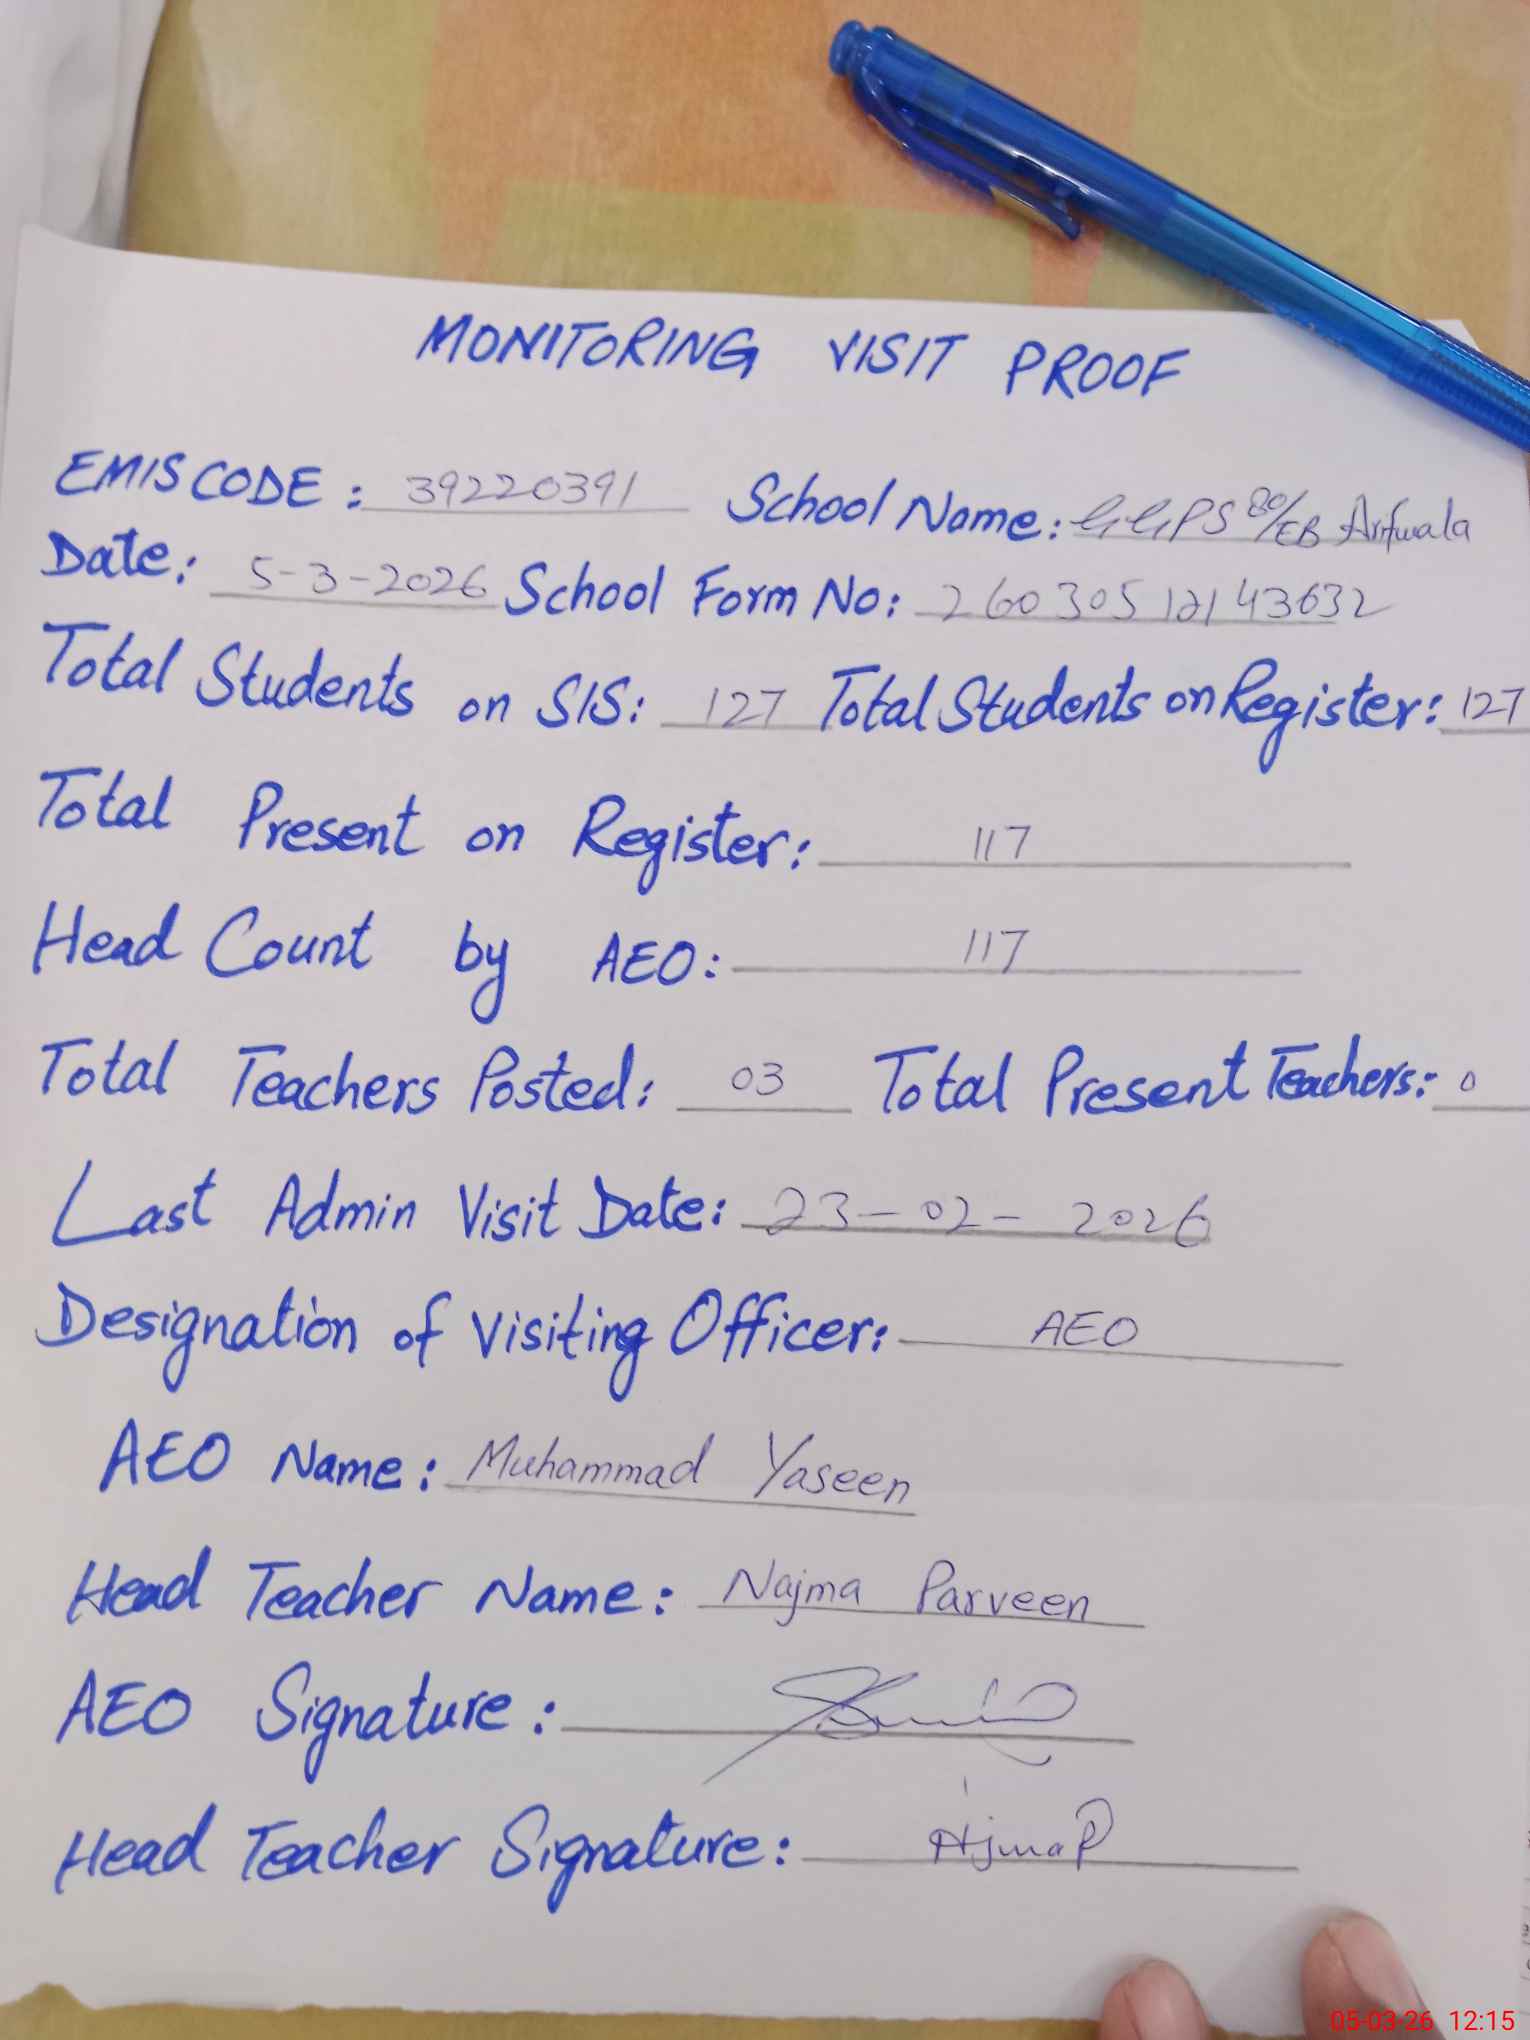 MONITORING VISIT PROOF
EMIS CODE: 39220391 School Name: GGPS 80/EB Arifwala
Date: 5-3-2026 School Form No: 260305 12143632
Total Students on SIS: 127 Total Students on Register: 127
Total Present on Register: 117
Head Count by AEO: 117
Total Teachers Posted: 03 Total Present Teachers: 0
Last Admin Visit Date: 23-02-2026
Designation of Visiting Officer: AEO
AEO Name: Muhammad Yaseen
Head Teacher Name: Najma Parveen
AEO Signature:
Head Teacher Signature:
05-03-26 12:15